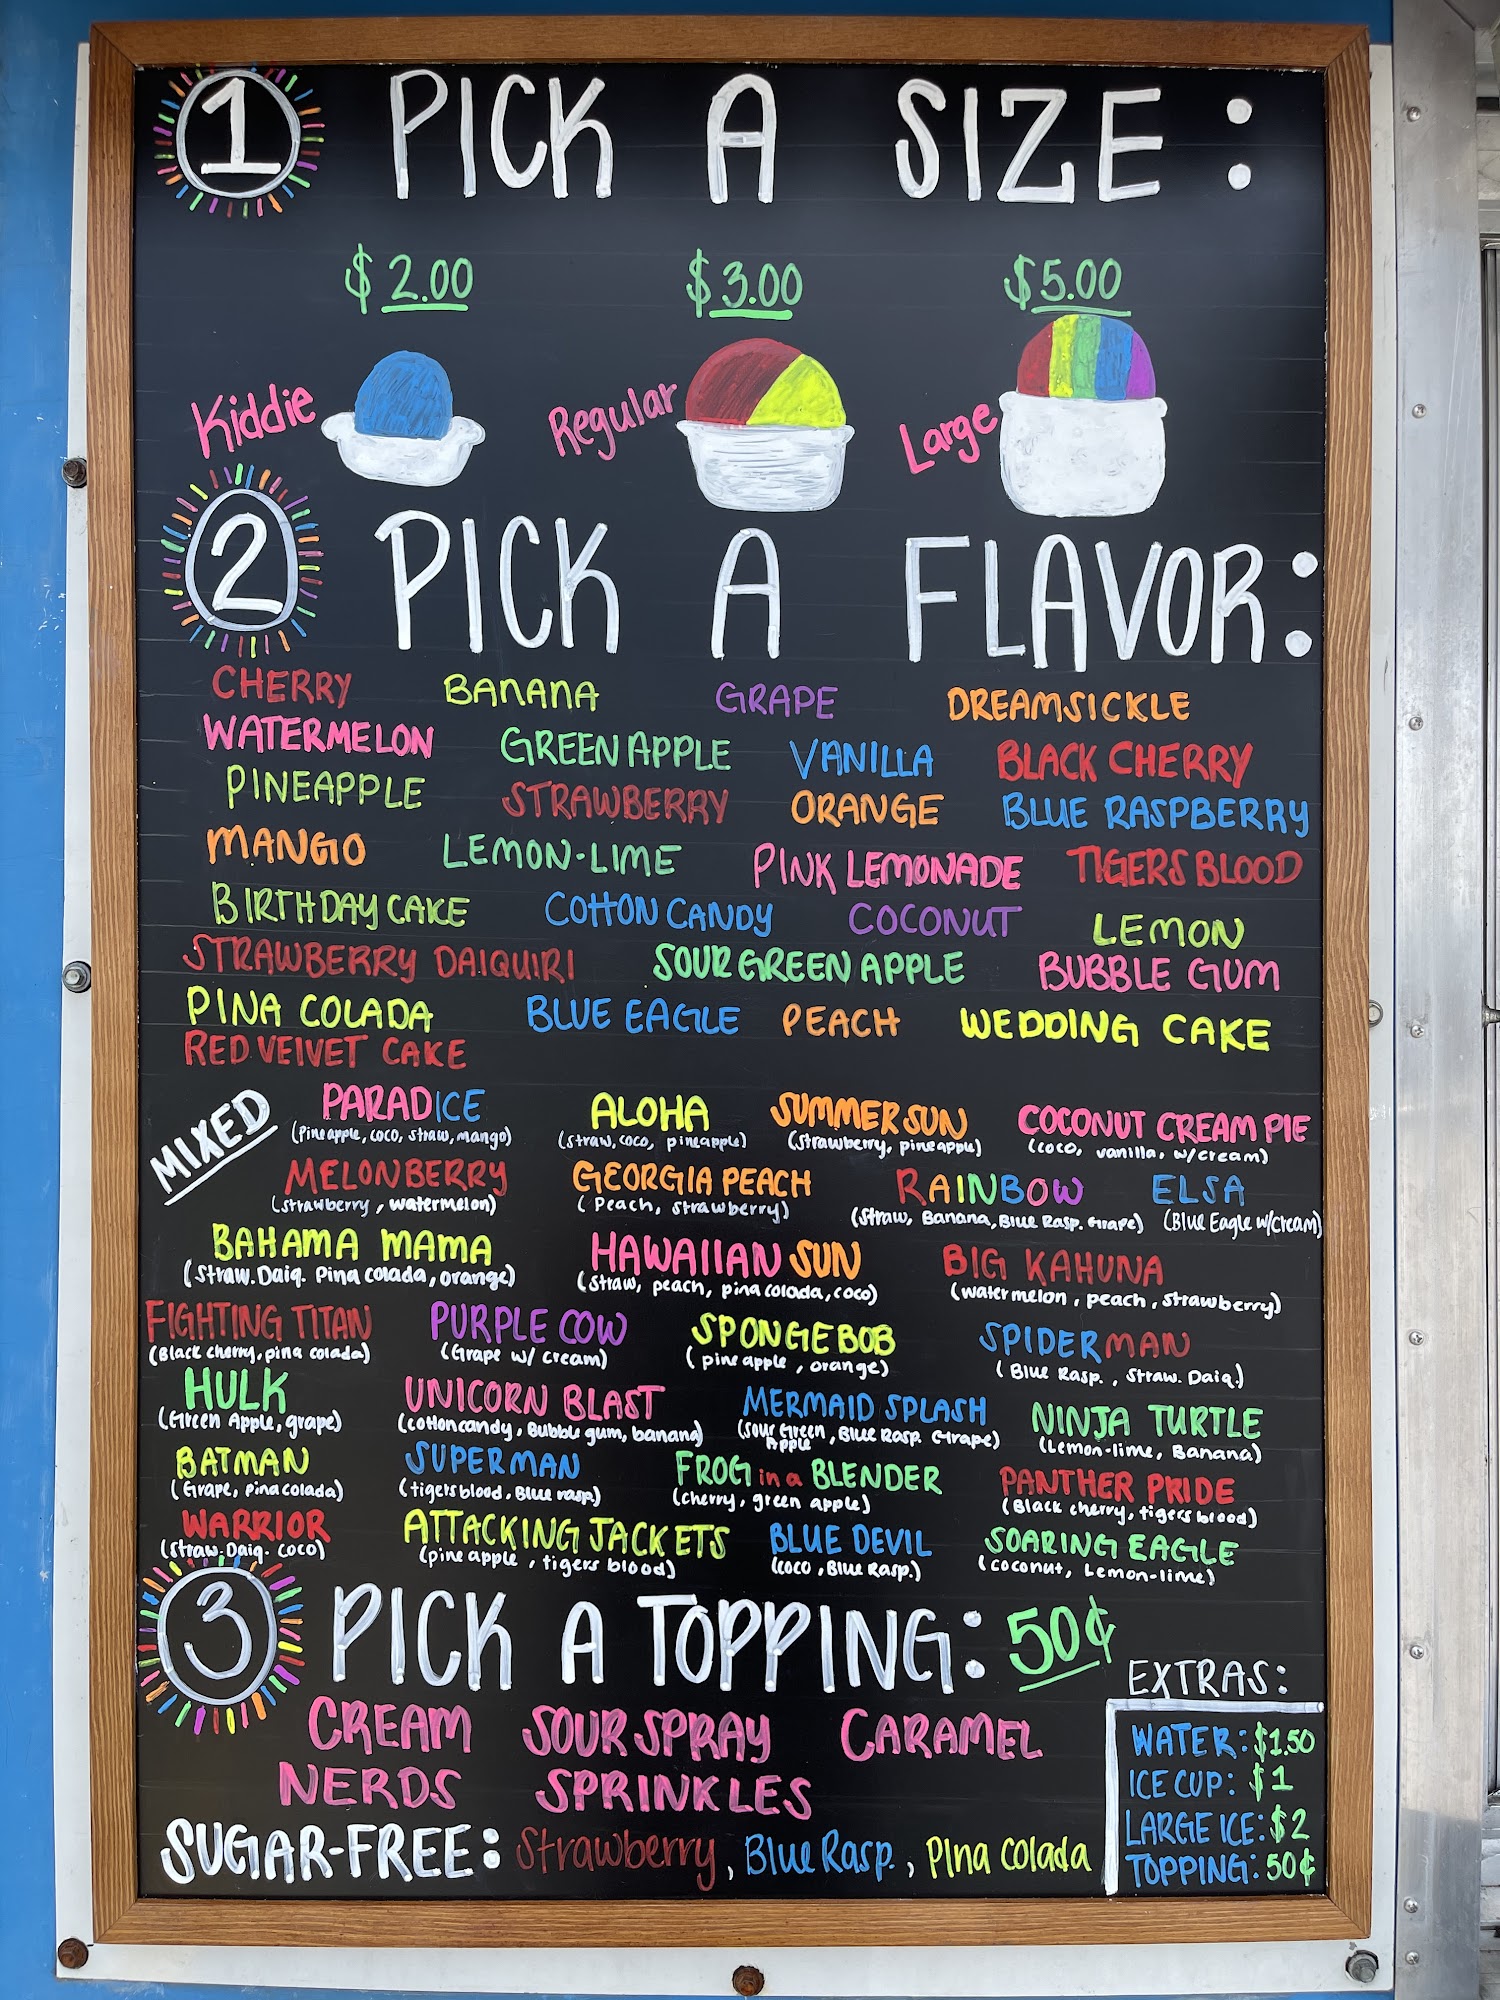 1 PICK A SIZE:
$2.00 $3.00 $5.00
Kiddie Regular Large
2 PICK A FLAVOR:
CHERRY BANANA GRAPE DREAMSICKLE
WATERMELON GREEN APPLE VANILLA BLACK CHERRY
PINEAPPLE STRAWBERRY ORANGE BLUE RASPBERRY
MANGO LEMON-LIME PINK LEMONADE TIGERS BLOOD
BIRTHDAY CAKE COTTON CANDY COCONUT LEMON
STRAWBERRY DAIQUIRI SOUR GREEN APPLE BUBBLE GUM
PINA COLADA BLUE EAGLE PEACH WEDDING CAKE
RED VElVET CAKE
MIXED
PARADICE ALOHA SUMMER SUN COCONUT CREAM PIE
(Pineapple, coco, straw, mango) (straw, coco, pineapple) (strawberry, pineapple) (coco, vanilla, w/cream)
MELONBERRY GEORGIA PEACH RAINBOW ELSA
(strawberry, watermelon) (Peach, strawberry) (Straw, Banana, Blue Rasp. Grape) (Blue Eagle w/cream)
BAHAMA MAMA HAWAIIAN SUN BIG KAHUNA
(Straw. Daiq. Pina colada, orange) (straw, peach, pina colada, coco) (watermelon, peach, strawberry)
FIGHTING TITAN PURPLE COW SPONGEBOB SPIDERMAN
(Black cherry, pina colada) (Grape w/ cream) (pineapple, orange) (Blue Rasp., Straw. Daiq.)
HULK UNICORN BLAST MERMAID SPLASH NINJA TURTLE
(Green Apple, grape) (cotton candy, Bubble gum, banana) (Sour Green Apple, Blue Rasp. Grape) (Lemon-lime, Banana)
BATMAN SUPERMAN FROG in a BLENDER PANTHER PRIDE
(Grape, pina colada) (tigers blood, Blue rasp.) (cherry, green apple) (Black cherry, tigers blood)
WARRIOR ATTACKING JACKETS BLUE DEVIL SOARING EAGLE
(Straw. Daiq. coco) (pineapple, tigers blood) (coco, Blue Rasp.) (coconut, Lemon-lime)
3 PICK A TOPPING: 50¢
CREAM SOUR SPRAY CARAMEL
NERDS SPRINKLES
SUGAR-FREE: Strawberry, Blue Rasp., Pina Colada
EXTRAS:
WATER: $1.50
ICE CUP: $1
LARGE ICE: $2
TOPPING: 50¢